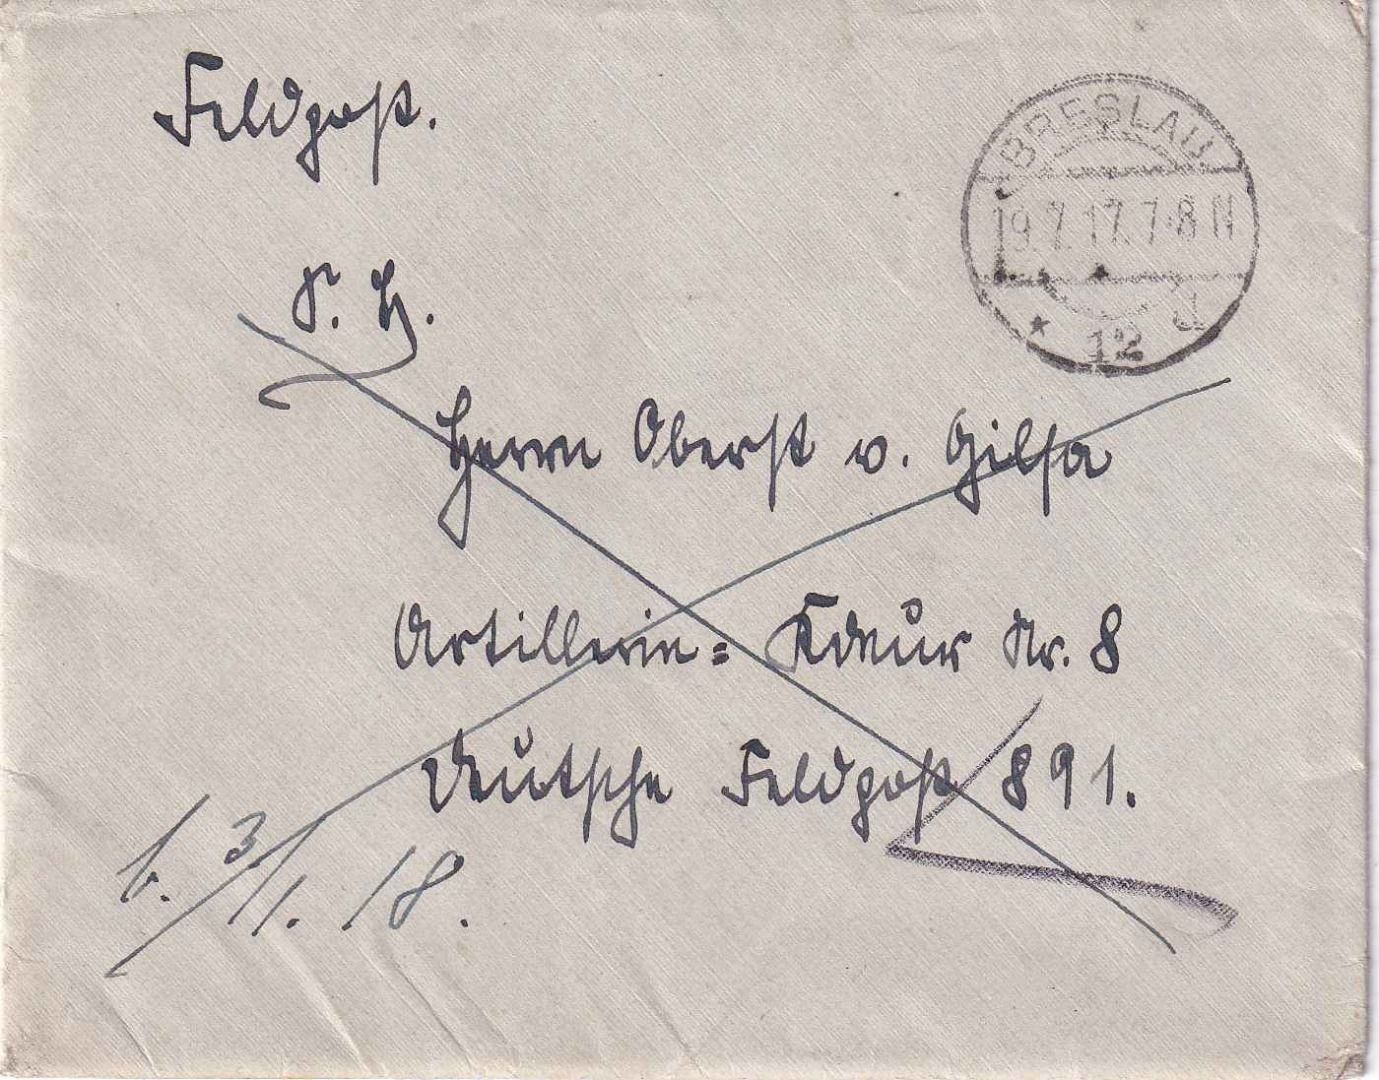 Feldpost.
BRESLAU
19.7.17.7-8 N
* 12 d
S. H.
Herrn Oberst v. Gilsa
Artillerie= Kdeur Nr. 8
Deutsche Feldpost 891.
b. 3/1. 18.